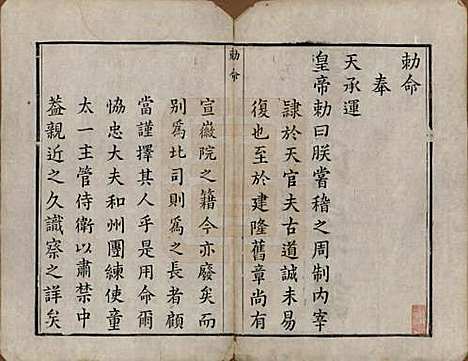 勅命
奉
天承運
皇帝勅曰朕嘗稽之周制内宰
隷於天官夫古道誠未易
復也至於建隆舊章尚有
勅命
宣徽院之籍今亦廢矣而
别爲北司則爲之長者顧
當謹擇其人乎是用命爾
協忠大夫和州團練使童
太一主管侍衛以肅禁中
葢親近之久識察之詳矣